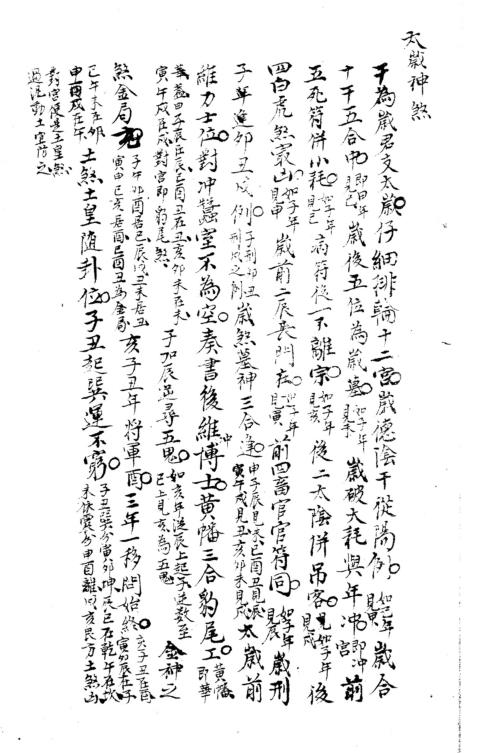 太歲神煞
干為歲君支太歲仔細排輪十二宮歲德陰干從陽例如己年見甲歲合
十干五合中即甲年見己歲後五位為歲墓如子年見未歲破大耗與年冲即冲宮前
五死符併小耗如子年見巳病符從一不離宗如子年見亥後二太陰併吊客如子年見戌後
四白虎煞最凶如子年見申歲前二辰喪門在如子年見寅前四畜官官符同如子年見辰歲刑
子年逢卯丑戌例子刑卯丑刑戌之例歲煞墓神三合逢申子辰見未巳酉丑見辰寅午戌見丑亥卯未見戌太歲前
維力士位對冲蠶室不為空奏書後維冲博士黃幡三合豹尾工黃幡即華
蓋申子辰在辰巳酉丑在丑亥卯未在未寅午戌在戌對宮即豹尾煞子加辰逆尋五鬼如亥年逆辰上起子逆數至巳上見亥為五鬼金神之
煞金局子午卯酉居巳辰戌丑未居丑寅申巳亥居酉巳酉丑為金局亥子丑年將軍酉三年一移問始終亥子丑在酉寅卯辰在子
巳午未在卯申酉戌在午土煞土皇隨卦位子丑起巽運不窮子丑巽分寅卯坤辰巳在乾午在坎未依震分申酉離戌亥艮方土煞凶
對宮便是土皇煞
過泥動土宜防之